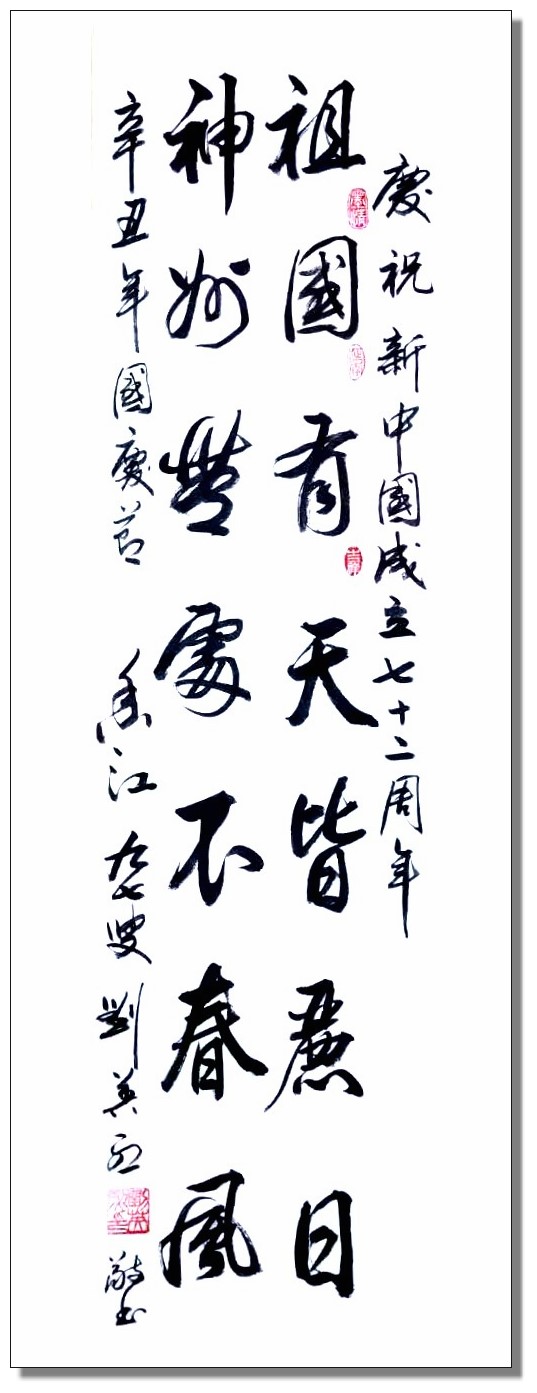 慶祝新中國成立七十二周年
祖國有天皆麗日
神州無處不春風
辛丑年國慶節 香江 九七叟 劉 敬書